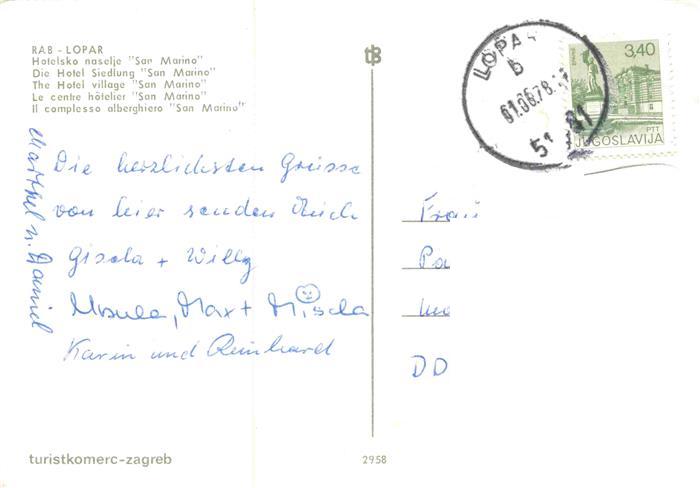 RAB - LOPAR
Hotelsko naselje "San Marino"
Die Hotel Siedlung "San Marino"
The Hotel village "San Marino"
Le centre hôtelier "San Marino"
Il complesso alberghiero "San Marino"
tb
LOPAR
b
01.08.78
51 
3,40
PTT
JUGOSLAVIJA
Die herzlichsten Grüsse
von hier senden Euch
Gisela + Willy
Ursula, Max + Miscla
Karin und Reinhard
u. Daniel
Frau
Pa
DD
turistkomerc-zagreb
2958